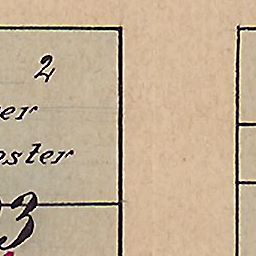 2
er
ester
3